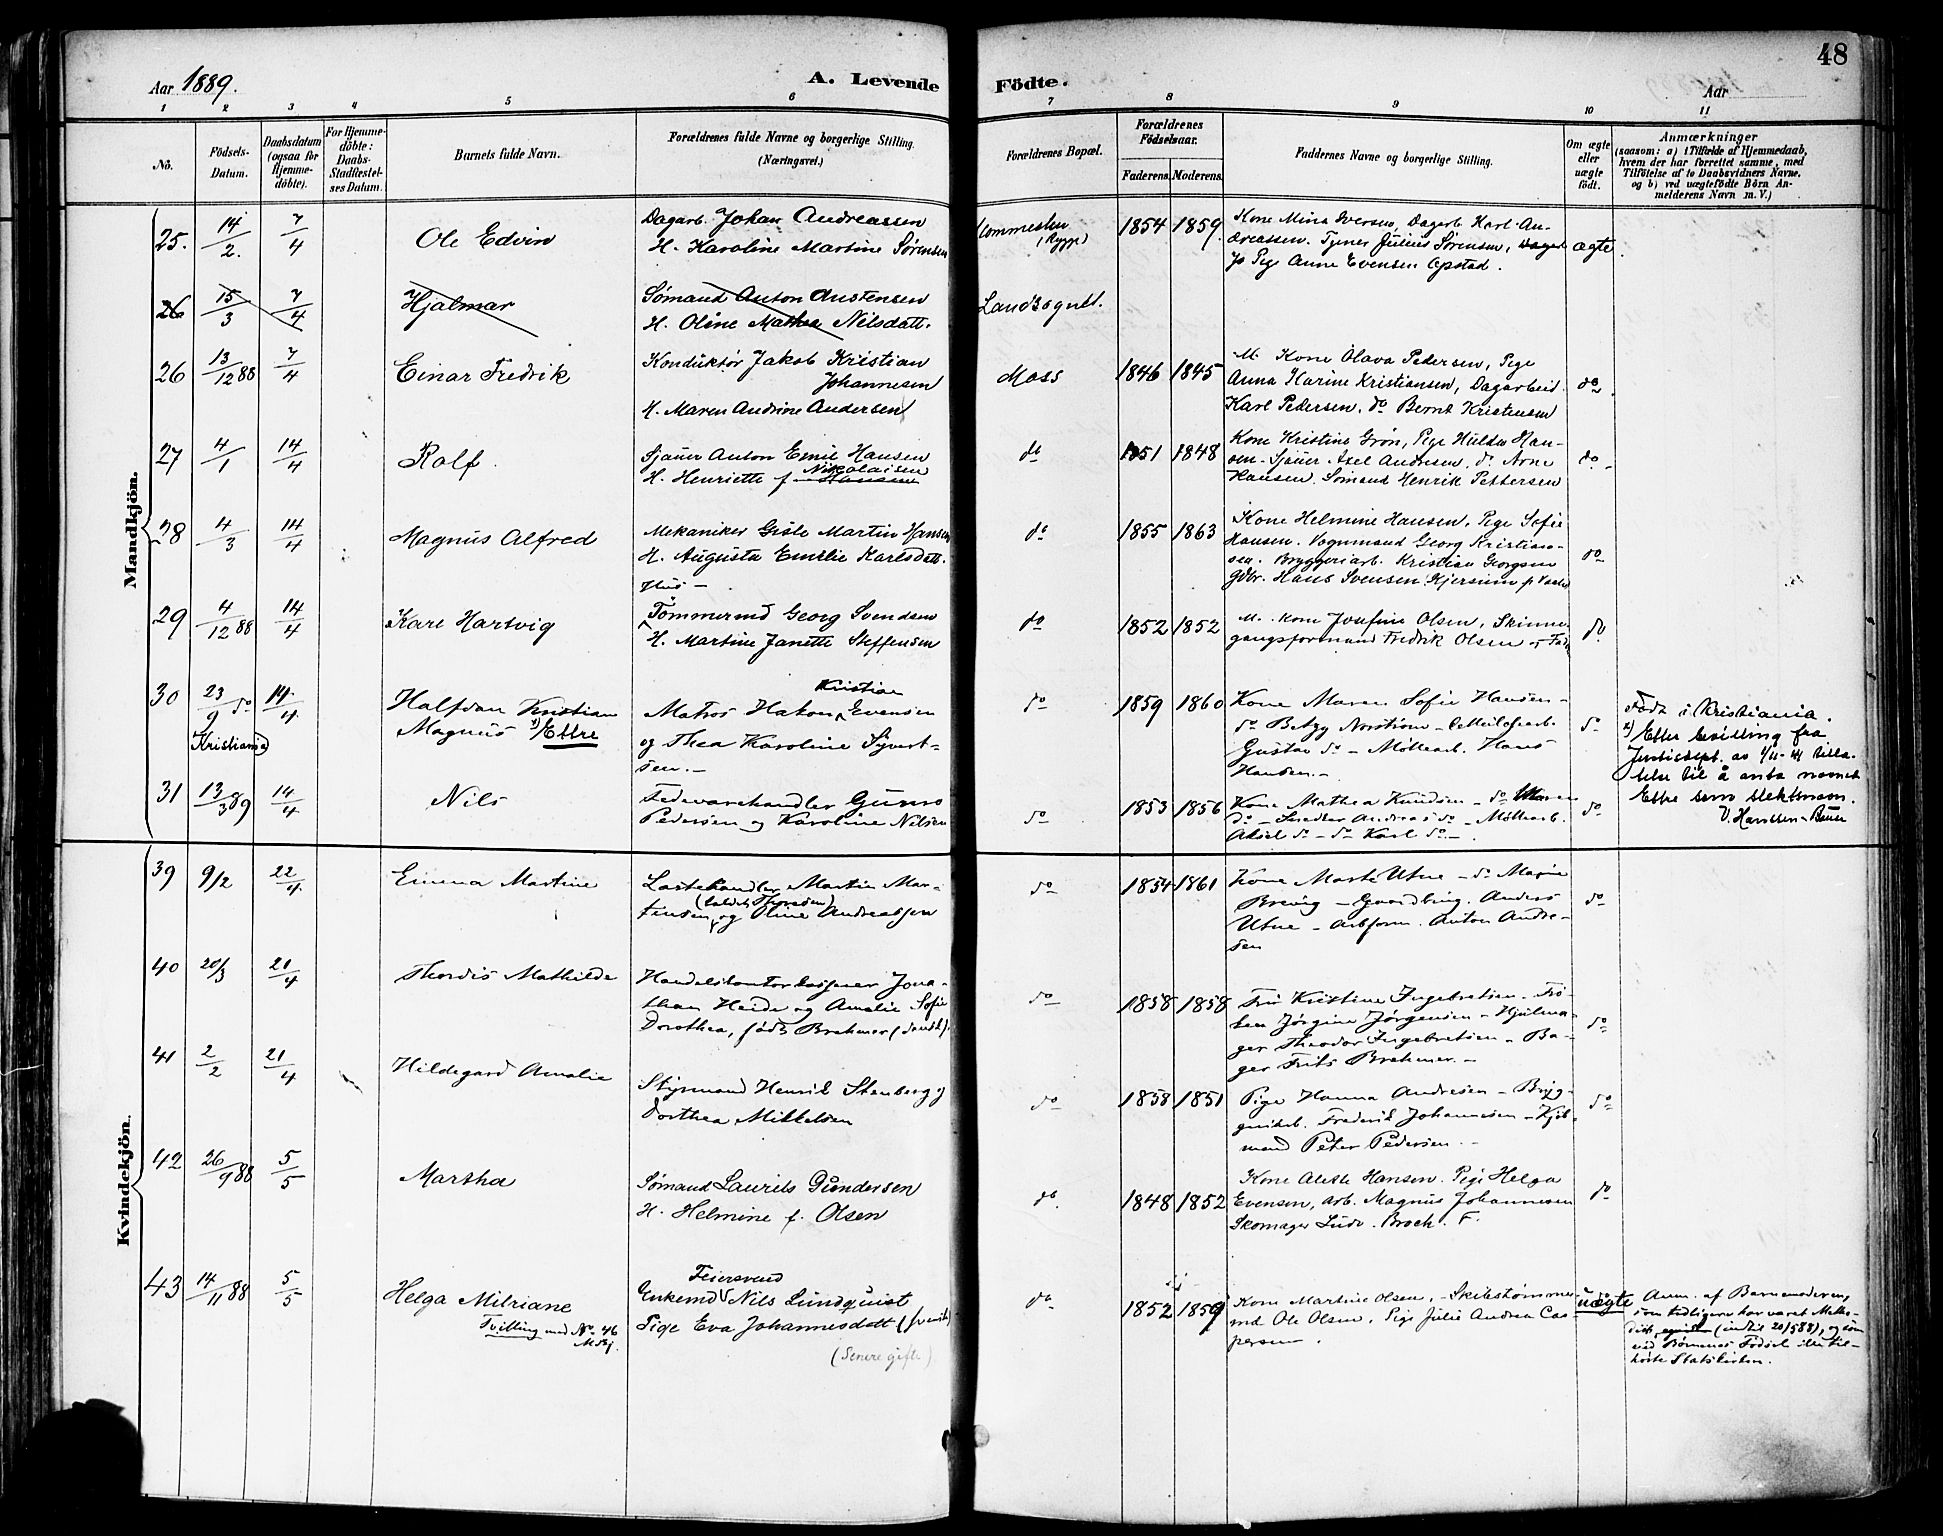 48
Aar 1889.
A. Levende
Födte.
Aar
1 2 3 4 5 6 7 8 9 10 11
Nö.
Födsels-
Datum.
Daabsdatum
(ogsaa for
Hjemme-
döbte).
For Hjemme-
döbte:
Daabs-
Stadfæstel-
ses Datum.
Barnets fulde Navn.
Forældrenes fulde Navne og borgerlige Stilling.
(Næringsvei.)
Forældrenes Bopæl.
Forældrenes
Födselsaar.
Faderens. Moderens.
Faddernes Navne og borgerlige Stilling.
Om ægte
eller
uægte
födt.
Anmærkninger
(saasom: a) i Tilfælde af Hjemmedaab,
hvem der har forrettet samme, med
Tilföielse af to Daabsvidners Navne,
og b) ved uægtefödte Börn An-
melderens Navn m. V.)
Mandkjön.
25. 14/2. 7/4 Ole Edvin
Dagarb. Johan Andreassen
H. Karoline Martine Sørensen
(Rygge)
1854 1859
Kone Mina Iversen, Dagarb. Karl An-
dreassen. Tjener Julius Sørensen,
Pige Anne Evensen Opstad.
ægte
26 15/3 7/4 Hjalmar
Sømand Anton Austensen
H. Oline Mathea Nilsdatt.
Landsognet.
26 13/12 88 7/4 Einar Fredrik
Konduktør Jakob Kristian
Johannesen
H. Maren Andrine Andersen
Moss
1846 1845
M. Kone Olava Pedersen, Pige
Anna Karine Kristiansen, Dagarbeid.
Karl Pedersen. do Bernt Kristensen
do
27 4/1 14/4 Rolf.
Sjauer Anton Emil Hansen
Nikolaisen
H. Henriette f. Hansen
do
1851 1848
Kone Kristine Grøn, Pige Hulda Han-
sen. Sjauer Axel Andresen. do Arne
Hansen. Sømand Henrik Pettersen
do
28 4/3 14/4 Magnus Alfred
Mekaniker Gisle Martin Hansen
H. Augusta Emilie Karlsdatt.
do
1855 1863
Kone Helmine Hansen. Pige Sofie
Hansen. Vognmand Georg Kristian-
sen. Bryggeriarb. Kristian Georgsen
Gdbr. Hans Svensen Kjersum
do
Hus-
29 4/12 88 14/4 Karl Hartvig
Tømmermd Georg Svendsen
H. Martine Janette Steffensen
do
1852 1852
M. Kone Josefine Olsen, Skinne-
gangsformand Fredrik Olsen
do
30 23/9 do 14/4
(Kristiania)
Halfdan Kristian
Magnus x) Ettre
Kristian
Matros Hakon Evensen
og Thea Karoline Syvert-
sen.-
do
1859 1860
Kone Maren Sofie Hansen -
do Betzy Norstrøm -
Gustav do - Møllearb. Hans
Hansen.-
do
Født i Kristiania.
x) Etter bevilling fra
Justisdept. av 1/11-41 tilla-
telse til å anta navnet
Ettre som slektsnavn.
V. Hanssen-Bauer
31 13/3 89 14/4 Nils
Fedevarehandler Gunno
Pedersen og Karoline Nilsen
do
1853 1856
Kone Mathea Knudsen - do Maren
do - Snedker Andreas do - Møllearb.
Aksel do - do Karl do.-
do
Kvindekjön.
39 9/2 22/4 Emma Martine
Lasthandler Martin Mar-
(kaldet Thoresen)
tinsen og Oline Andreassen
do
1854 1861
Kone Marte Utne - do Marie
Brevig - Gaardbrug. Anders
Utne - Arbform. Anton Andre-
sen
do
40 20/3 21/4 Thordis Mathilde
Handelskontorbogfører Jona-
than Heide og Amalie Sofie
Dorothea, født Brehmer (dansk).
do
1858 1858
Fru Kristine Ingebretsen. Frø-
ken Jørgine Jørgensen - Hjulma-
ger Theodor Ingebretsen - Ba-
ger Frits Brehmer.-
do
41 2/2 21/4 Hildegard Amalie
Styrmand Henrik Stenberg og
Dorthea Mikkelsen
do
1858 1851
Pige Hanna Andresen - Bryg-
geriarb. Frederik Johannesen - Kjøb-
mand Peter Pedersen.-
do
42 26/9 88 5/5 Martha
Sømand Laurits Gundersen
H. Helmine f. Olsen
do.
1848 1852
Kone Aleth Hansen. Pige Helga
Evensen, Arb. Magnus Johannesen
Skomager Ludv. Broch. F.
do
43 14/11 88 5/5 Helga Milriane
Tvilling med No 46
Mdkj.
Feiersvend
Enkemd Nils Lundquist
Pige Eva Johannesdatt (svensk)
(Senere gifte)
do
1852 1859
Kone Martine Olsen, - Skibstømmer-
md Ole Olsen, Pige Julie Andrea Cas-
persen.
uægte
Anm. af Barnemoderen,
som tidligere har været Metho-
dist (indtil 20/5 88), og som
ved Børnenes Fødsel ikke til-
hørte Statskirken.